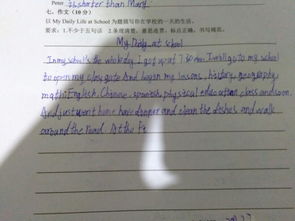 Peter is shorter than Mary.
七、作文（10分）
以 My Daily Life at School 为题描写你在学校的一天的生活。
要求：1.不少于五句话 2.条理清楚，意思连贯，标点正确，书写规范。
My Daily at school
In my school's the whole day I get up at 7 I will go to my school
to open my class gate And began my lessons, history, geography
math English, Chinese, spanish, physical education class and soon.
And just went home have dinner and clean the dishes and walk
around the road. At the